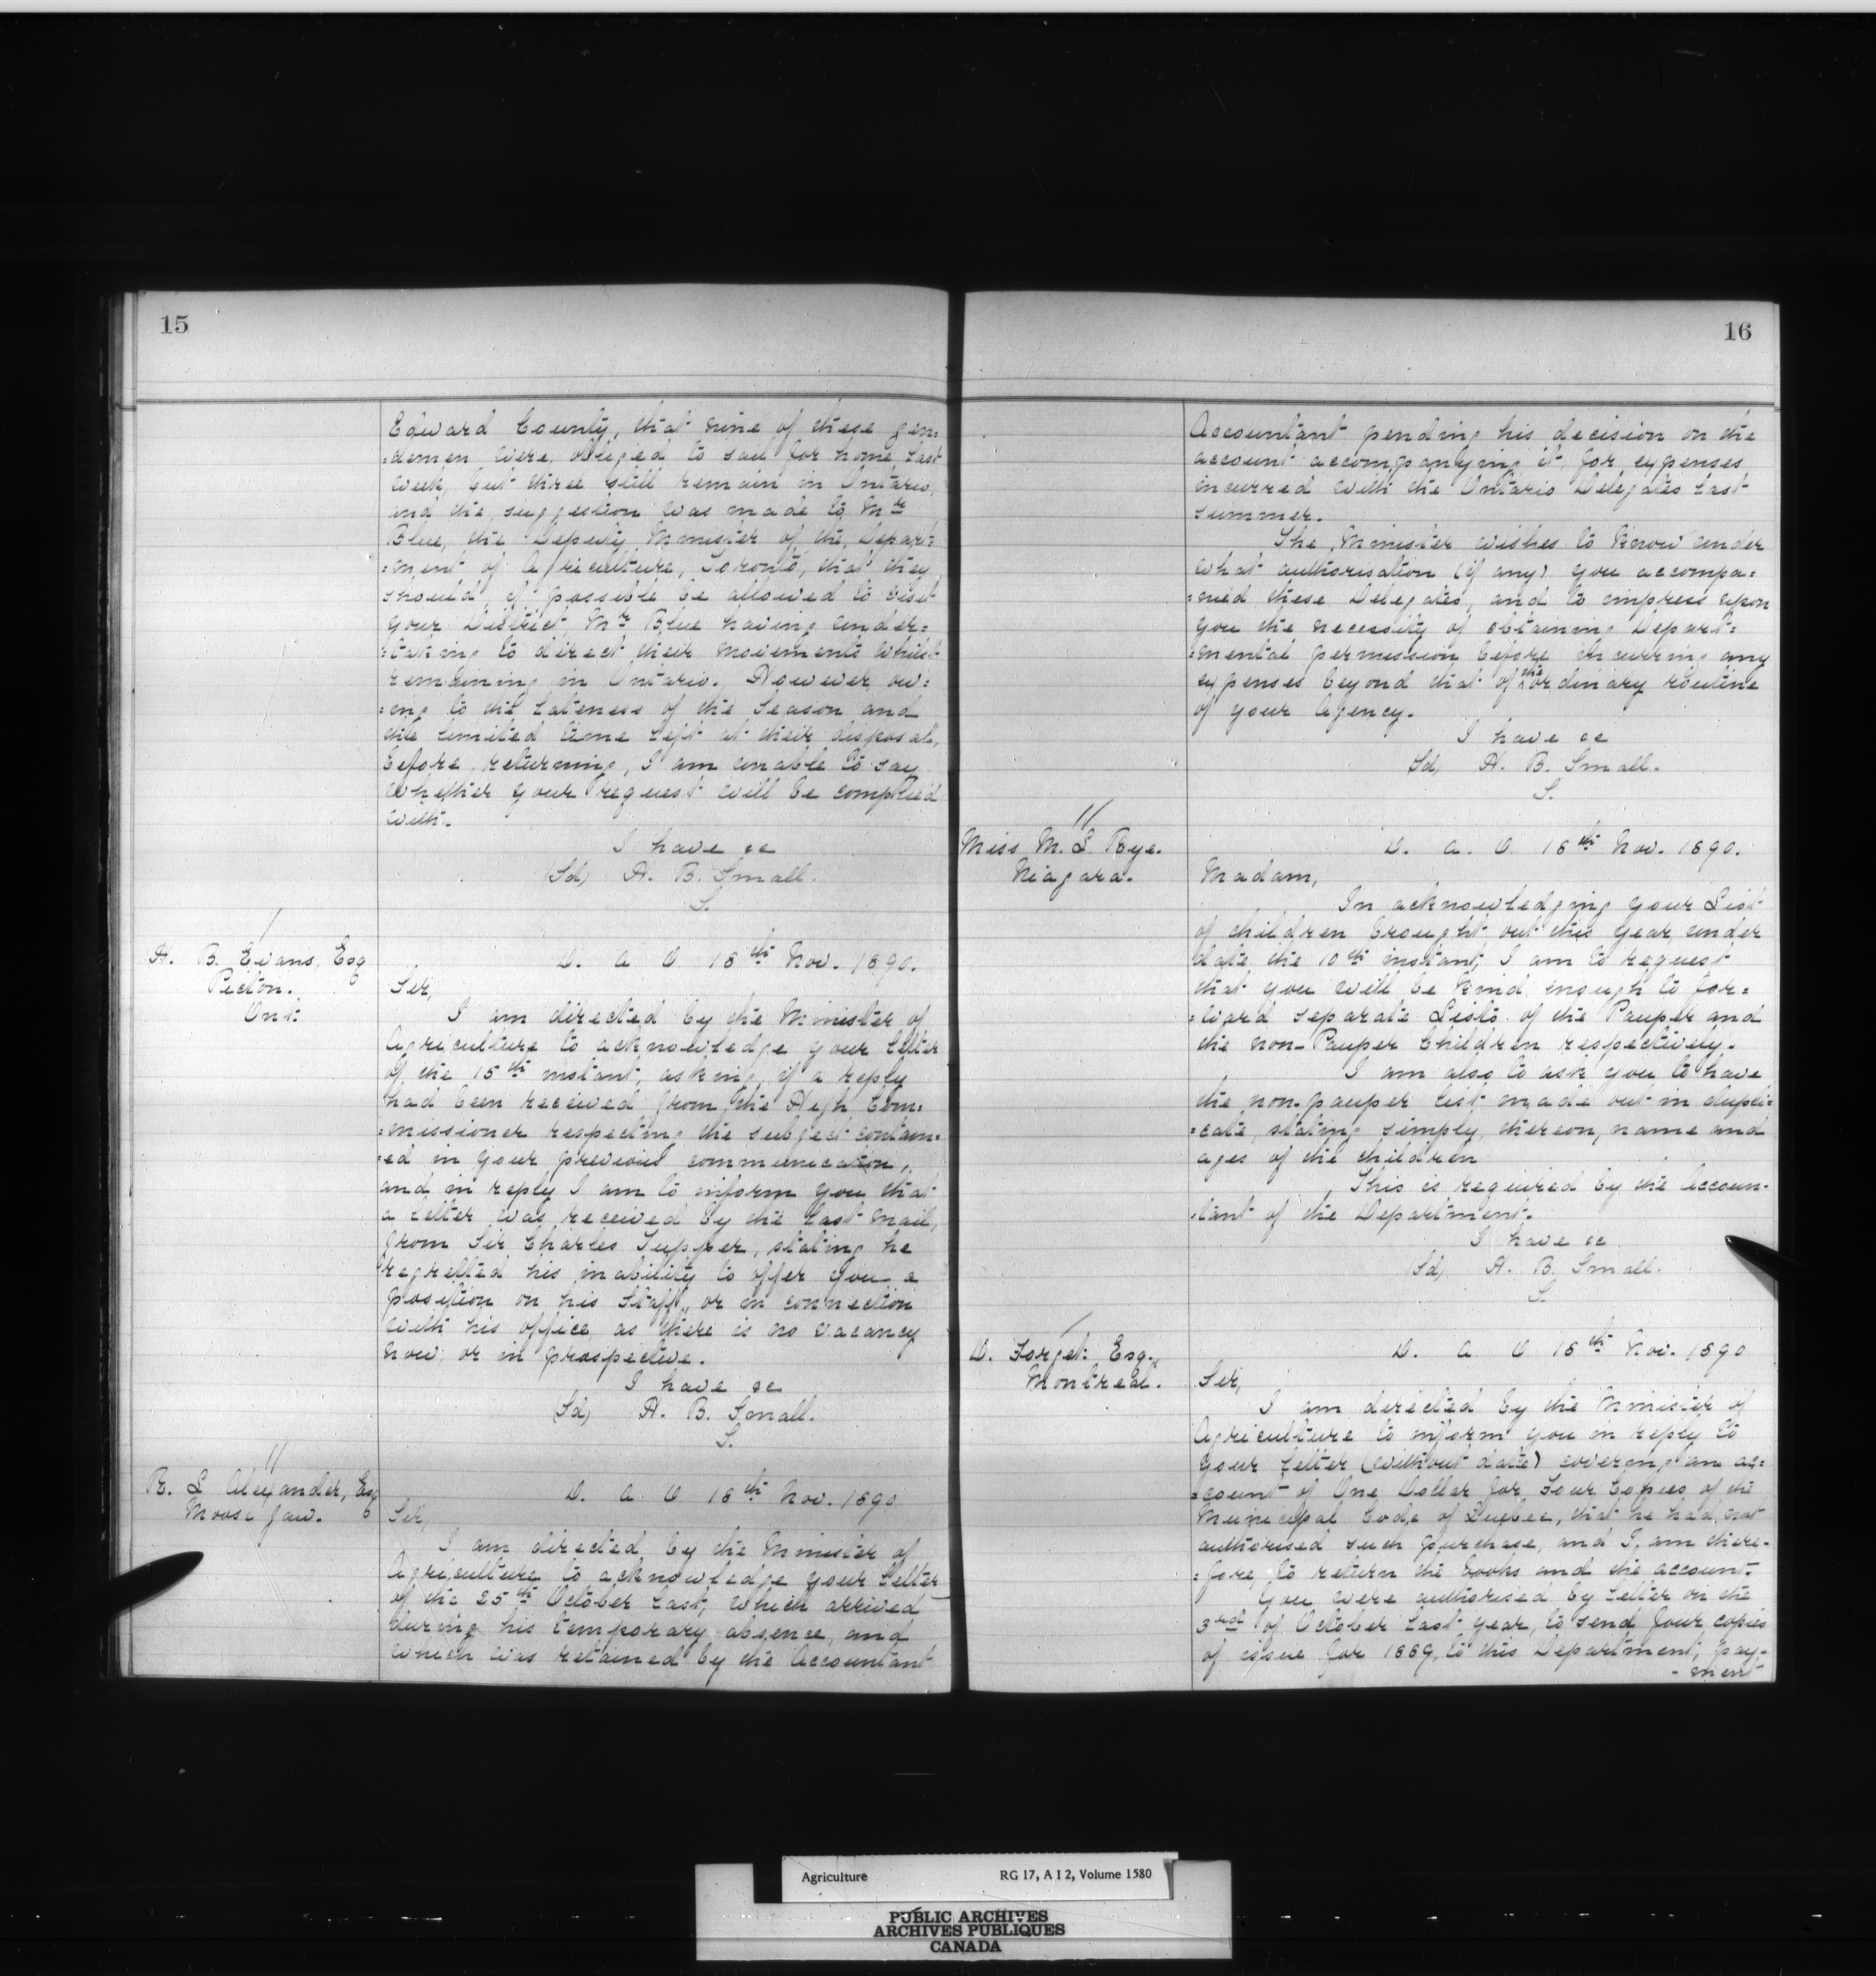 15
Edward County, that nine of these gen:
:demen were obliged to sail for home last
week, but three still remain in Ontario,
and the suggestion was made to Mr
Blue, the Deputy Minister of the Depart:
:ment of Agriculture, Toronto, that they
should, if possible be allowed to visit
your District, Mr Blue having under:
:taking to direct their movements whilst
remaining in Ontario. However ow:
:ing to the lateness of the season and
the limited time left at their disposal,
before returning, I am unable to say
whether your request will be complied
with.
I have &c
(Sd) H. B. Small.
S.
/
H. B. Evans, Esq
Picton.
Ont.
D. a O 18th Nov. 1890.
Sir,
I am directed by the Minister of
Agriculture to acknowledge your letter
of the 15th instant, asking if a reply
had been received from the High Com:
:missioner respecting the subject contain:
:ed in your previous communication,
and in reply I am to inform you that
a letter was received by the last mail,
from Sir Charles Tupper, stating he
regretted his inability to offer you a
position on his Staff, or in connection
with his office as there is no vacancy
now, or in prospective.
I have &c
(Sd) H. B. Small.
S.
//
R. L Alexander, Esq
Moose Jaw.
D. a O 18th Nov. 1890
Sir,
I am directed by the Minister of
Agriculture to acknowledge your letter
of the 25th October last, which arrived
during his temporary absence, and
which was retained by the Accountant
16
Accountant pending his decision on the
account accompanying it, for expenses
incurred with the Ontario Delegates last
summer.
The Minister wishes to know under
what authorisation (if any) you accompa:
:nied these Delegates, and to impress upon
you the necessity of obtaining Depart:
:mental permission before incurring any
expenses beyond that of the ordinary routine
of your Agency.
I have &c
(Sd) H. B. Small.
S.
//
Miss M. S. Rye.
Niagara.
D. a. O 18th Nov. 1890.
Madam,
In acknowledging your List
of children brought out this year, under
date the 10th instant, I am to request
that you will be kind enough to for:
:ward separate Lists of the Pauper and
the non-Pauper Children respectively.
I am also to ask you to have
the non-pauper list made out in dupli:
:cate, stating simply, thereon, name and
ages of the children
This is required by the Accoun-
:tant of the Department.
I have &c
(Sd) H. B. Small.
S.
/
D. Forget Esq.,
Montreal.
D. a O 18th Nov. 1890
Sir,
I am directed by the Minister of
Agriculture to inform you in reply to
your letter (without date) covering an ac:
:count of One Dollar for Four Copies of the
Municipal Code of Quebec, that he had not
authorised such purchase, and I am there-
:fore, to return the books and the account.
You were authorised by letter on the
3rd of October last year, to send four copies
of issue for 1889, to this Department, pay-
-ment
Agriculture RG 17, A I 2, Volume 1580
PUBLIC ARCHIVES
ARCHIVES PUBLIQUES
CANADA